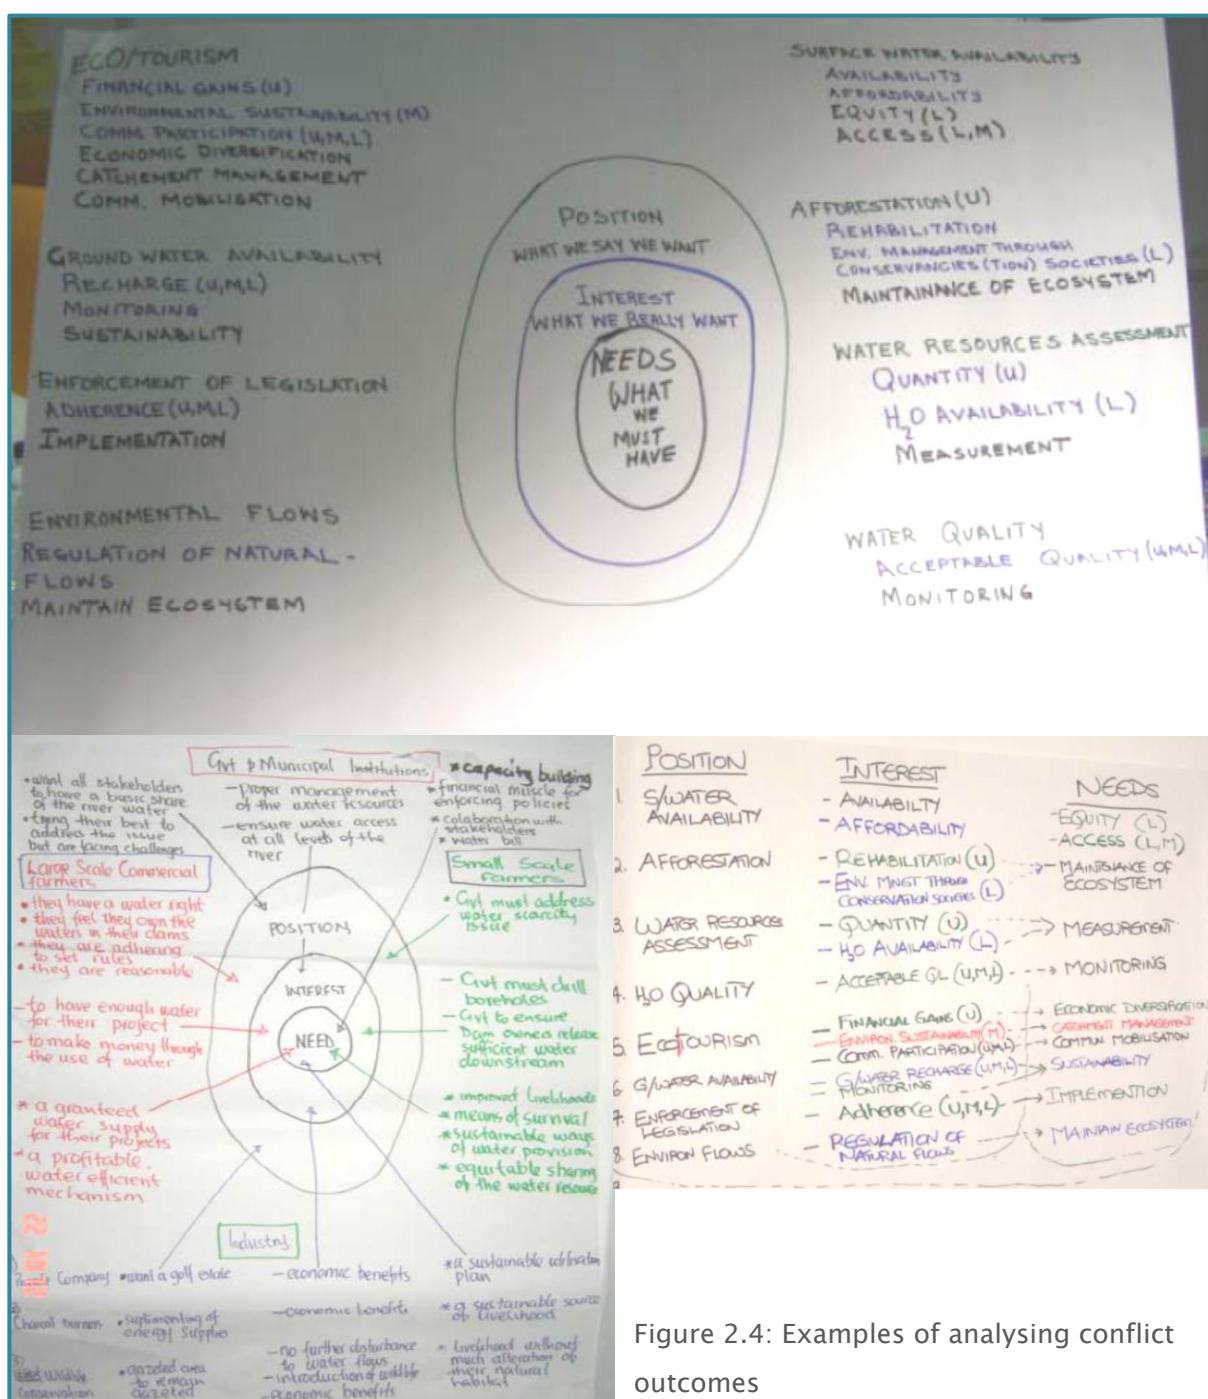 ECO/TOURISM
FINANCIAL GAINS (U)
ENVIRONMENTAL SUSTAINABILITY (M)
COMM. PARTICIPATION (U,M,L)
ECONOMIC DIVERSIFICATION
CATCHEMENT MANAGEMENT
COMM. MOBILISATION
GROUND WATER AVAILABILITY
RECHARGE (U,M,L)
MONITORING
SUSTAINABILITY
ENFORCEMENT OF LEGISLATION
ADHERENCE (U,M,L)
IMPLEMENTATION
ENVIRONMENTAL FLOWS
REGULATION OF NATURAL -
FLOWS
MAINTAIN ECOSYSTEM
POSITION
WHAT WE SAY WE WANT
INTEREST
WHAT WE REALLY WANT
NEEDS
WHAT
WE
MUST
HAVE
SURFACE WATER AVAILABILITY
AVAILABILITY
AFFORDABILITY
EQUITY (L)
ACCESS (L,M)
AFFORESTATION (U)
REHABILITATION
ENV. MANAGEMENT THROUGH
CONSERVANCIES (TION) SOCIETIES (L)
MAINTAINANCE OF ECOSYSTEM
WATER RESOURCES ASSESSMENT
QUANTITY (U)
H2O AVAILABILITY (L)
MEASUREMENT
WATER QUALITY
ACCEPTABLE QUALITY (U,M,L)
MONITORING
Gvt & Municipal Institutions
• want all stakeholders
to have a basic share
of the river water
• trying their best to
address the issue
but are facing challenges
- proper management
of the water resources
- ensure water access
at all levels of the
river
* capacity building
* financial muscle for
enforcing policies
* colaboration with
stakeholders
* water bill
Large Scale Commercial
farmers
• they have a water right
• they feel they own the
waters in their dams
• they are adhering
to set rules
• they are reasonable
- to have enough water
for their project
- to make money through
the use of water
* a granteed
water supply
for their projects
* a profitable,
water efficient
mechanism
POSITION
INTEREST
NEED
Small Scale
farmers
• Gvt must address
water scarcity
issue
- Gvt must drill
boreholes
- Gvt to ensure
Dam owners release
sufficient water
downstream
* improved livelihoods
* means of survival
* sustainable ways
of water provision
* equitable sharing
of the water resource
Industry
Company • want a golf estate
- economic benefits
* a sustainable utilisation
plan
Charcoal burners • suplimenting of
energy supplies
- economic benefits
* a sustainable source
of livelihood
Wildlife
Conservation
• gazeted area
to remain
gazeted
- no further disturbance
to water flows
- introduction of wildlife
- economic benefits
* Livelihood without
much alteration of
their natural
habitat
POSITION
1. S/WATER
AVAILABILITY
2. AFFORESTATION
3. WATER RESOURCES
ASSESSMENT
4. H2O QUALITY
5. EcoTOURISM
6 G/WATER AVAILABILITY
7. ENFORCEMENT OF
LEGISLATION
8. ENVIRON FLOWS
INTEREST
- AVAILABILTY
- AFFORDABILITY
- REHABILITATION (U)
- ENV. MNGT THROUGH
CONSERVATION SOCIETIES (L)
- QUANTITY (U)
- H2O AVAILABILITY (L)
- ACCEPTABLE QL (U,M,L)
- FINANCIAL GAINS (U)
- ENVIRON. SUSTAINABILITY (M)
- Comm. PARTICIPATION (U,M,L)
- G/WATER RECHARGE (U,M,L)
- MONITORING
- Adherence (U,M,L)
- REGULATION OF
NATURAL FLOWS
NEEDS
- EQUITY (L)
- ACCESS (L,M)
- MAINTENANCE OF
ECOSYSTEM
MEASUREMENT
MONITORING
ECONOMIC DIVERSIFICATION
CATCHMENT MANAGEMENT
COMMUN MOBILISATION
SUSTAINABILITY
IMPLEMENTION
MAINTAIN ECOSYSTEM
Figure 2.4: Examples of analysing conflict
outcomes